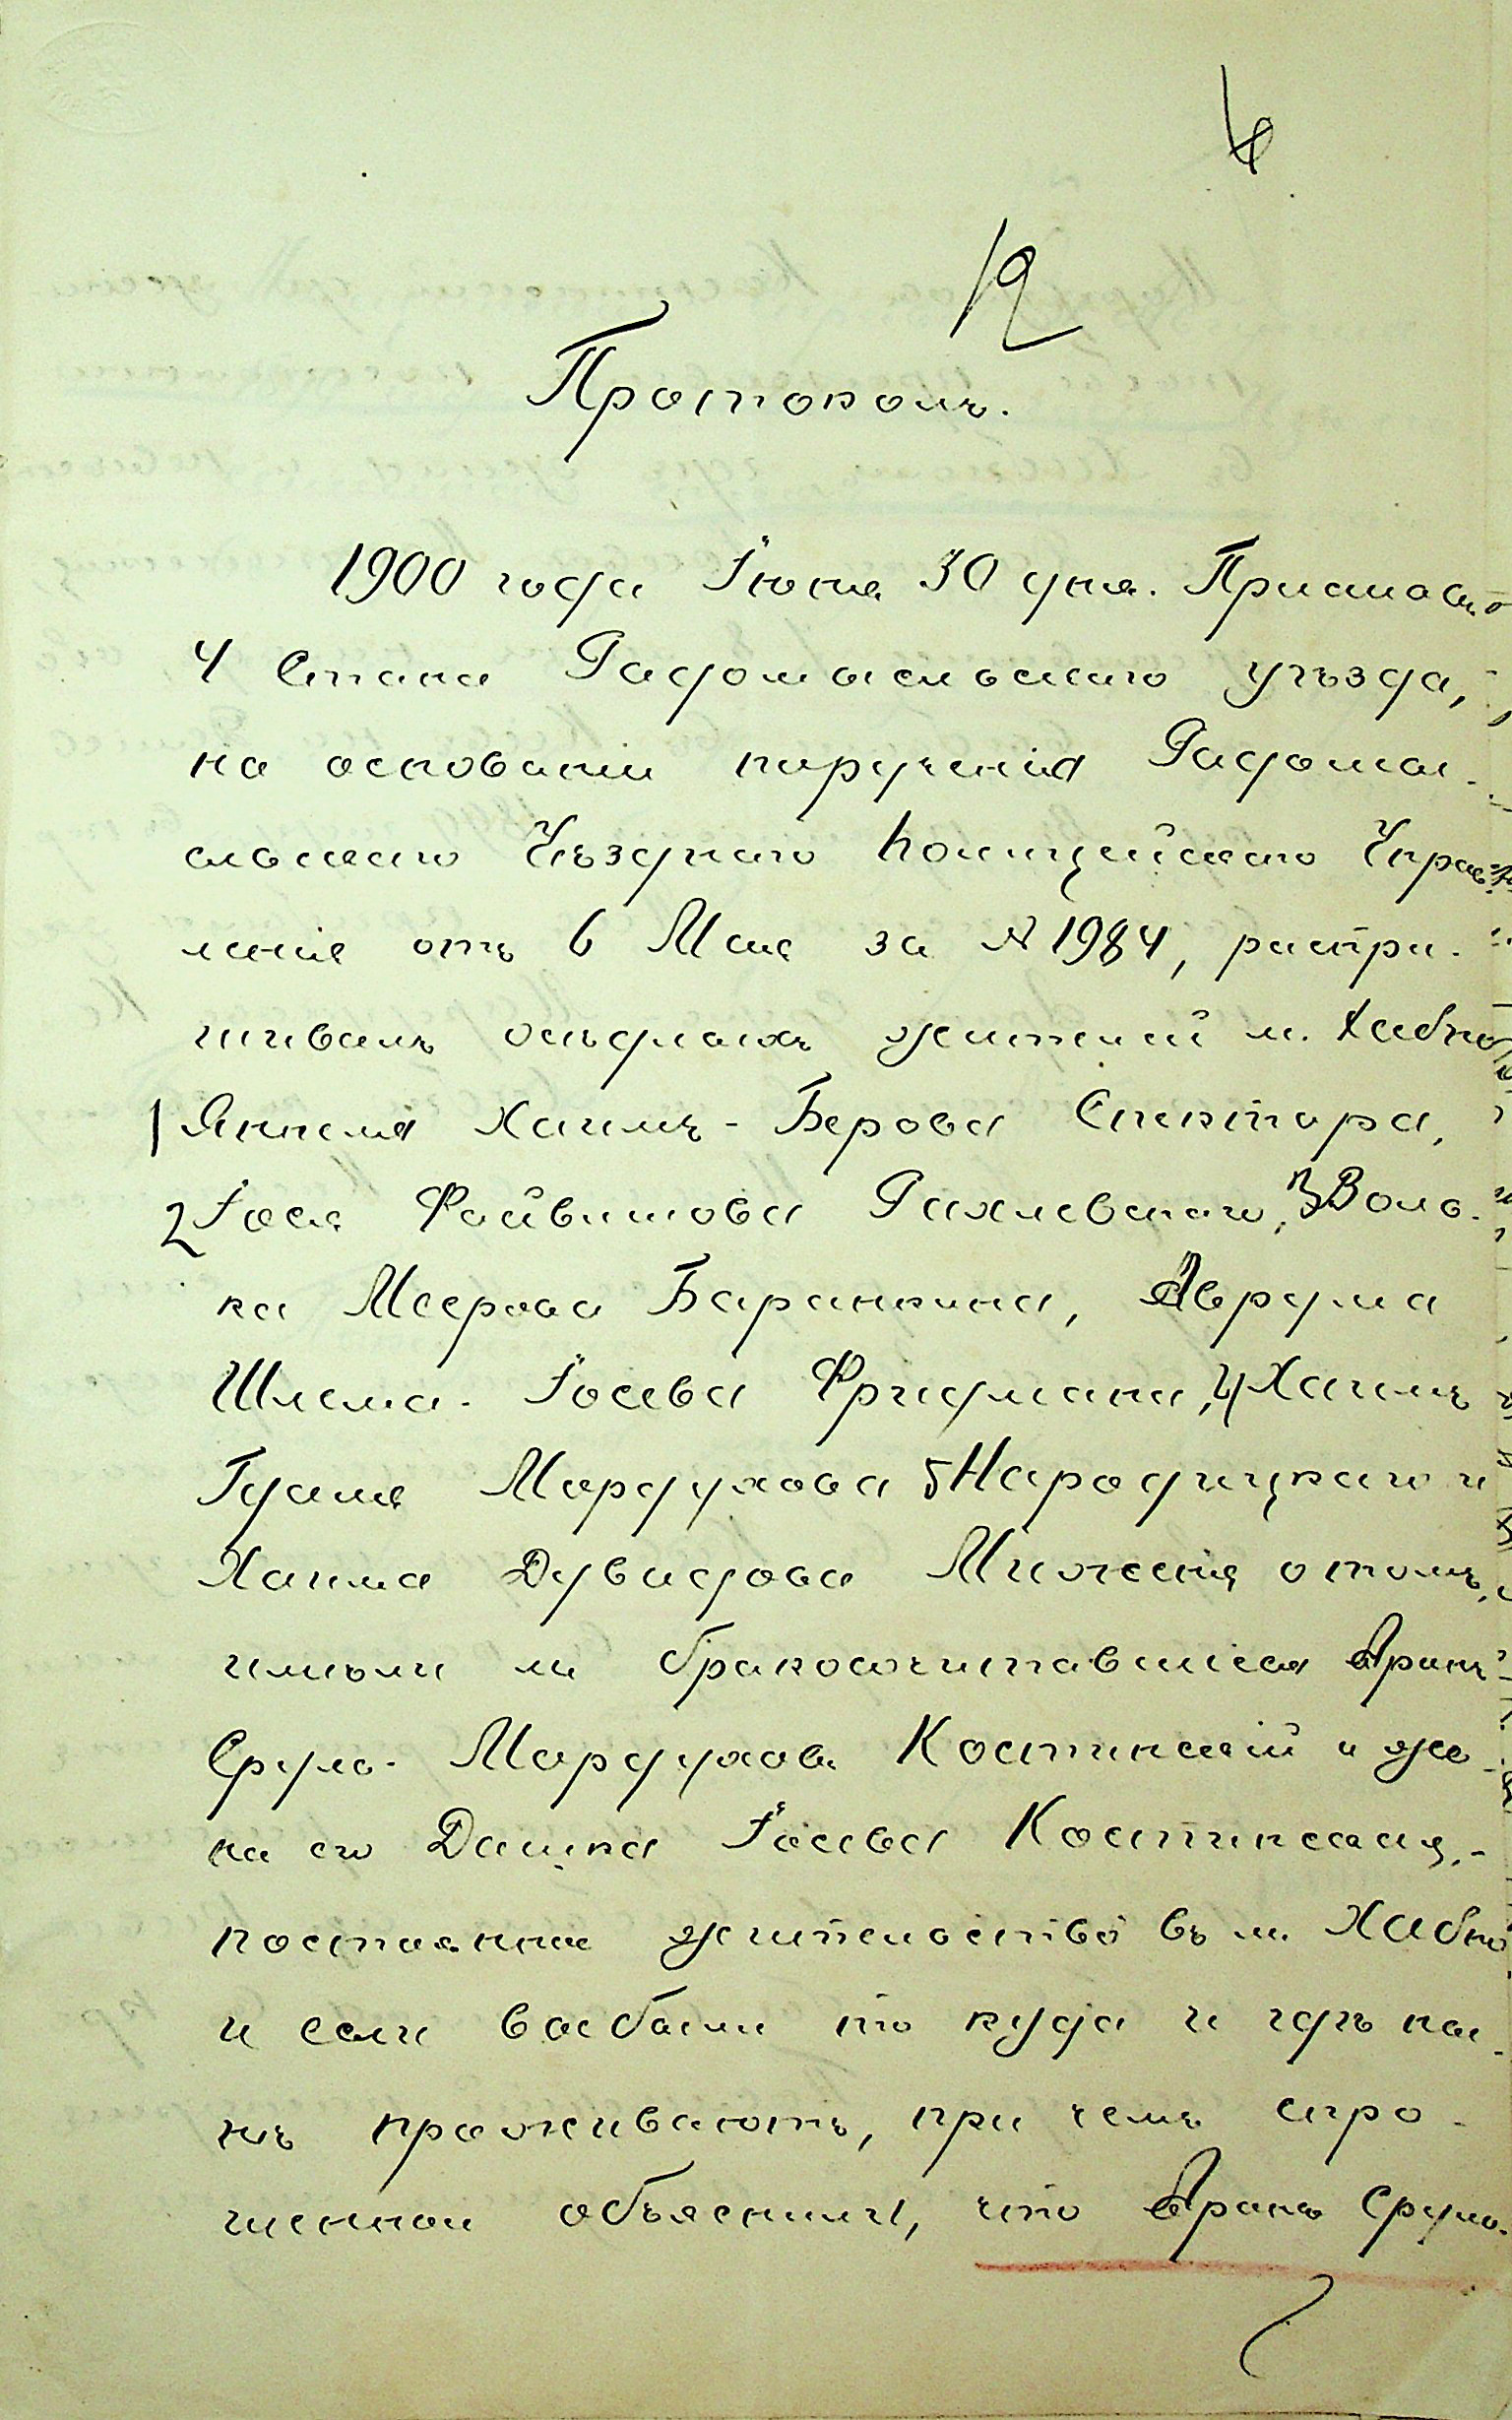 12
Протоколъ.
1900 года Іюня 30 дня. Приставъ
4 Стана Радомысльскаго уѣзда,
на основаніи порученія Радомы-
сльскаго Уѣзднаго Полицейскаго Управ
ленія отъ 6 Мая за № 1984, распра-
шивалъ осѣдлыхъ жителей м. Хабно
1 Янкеля Хаимъ-Берова Спектора,
2 Іося Файвишова Рахлевскаго, 3 Воль-
ка Меерова Баранкина, Аврума
Шлема-Іосева Фридмана, 4 Хаимъ
Гдаля Мордухова 5 Народицкаго и
Хаима Дувидова Миложенія о томъ,
имѣли ли бракосочитавшіеся Аронъ
Сруль-Мордуховъ Костинскій и же-
на его Дашка Іосева Костинская,-
постоянное жительство въ м. Хабно
и если выбыли то куда и гдѣ ны-
нѣ проживаютъ, при чемъ спро-
шенные объяснили, что Аронъ Сруль-